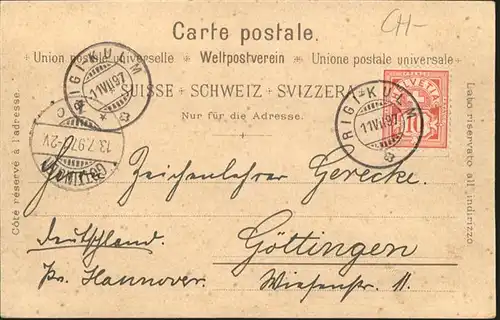 CH-
Carte postale.
Union postale universelle * Weltpostverein * Unione postale universale
SUISSE + SCHWEIZ + SVIZZERA
Nur für die Adresse.
Côté réservé à l'adresse.
Lato riservato all' indirizzo
RIGI-KULM
11 VII 97
RIGI-KULM
11 VII 97
HELVETIA
10
13.7.97.
GÖTTINGEN
Zeichenlehrer Gerecke.
Deutschland.
Göttingen
Pr. Hannover.
Wiesenstr. 11.